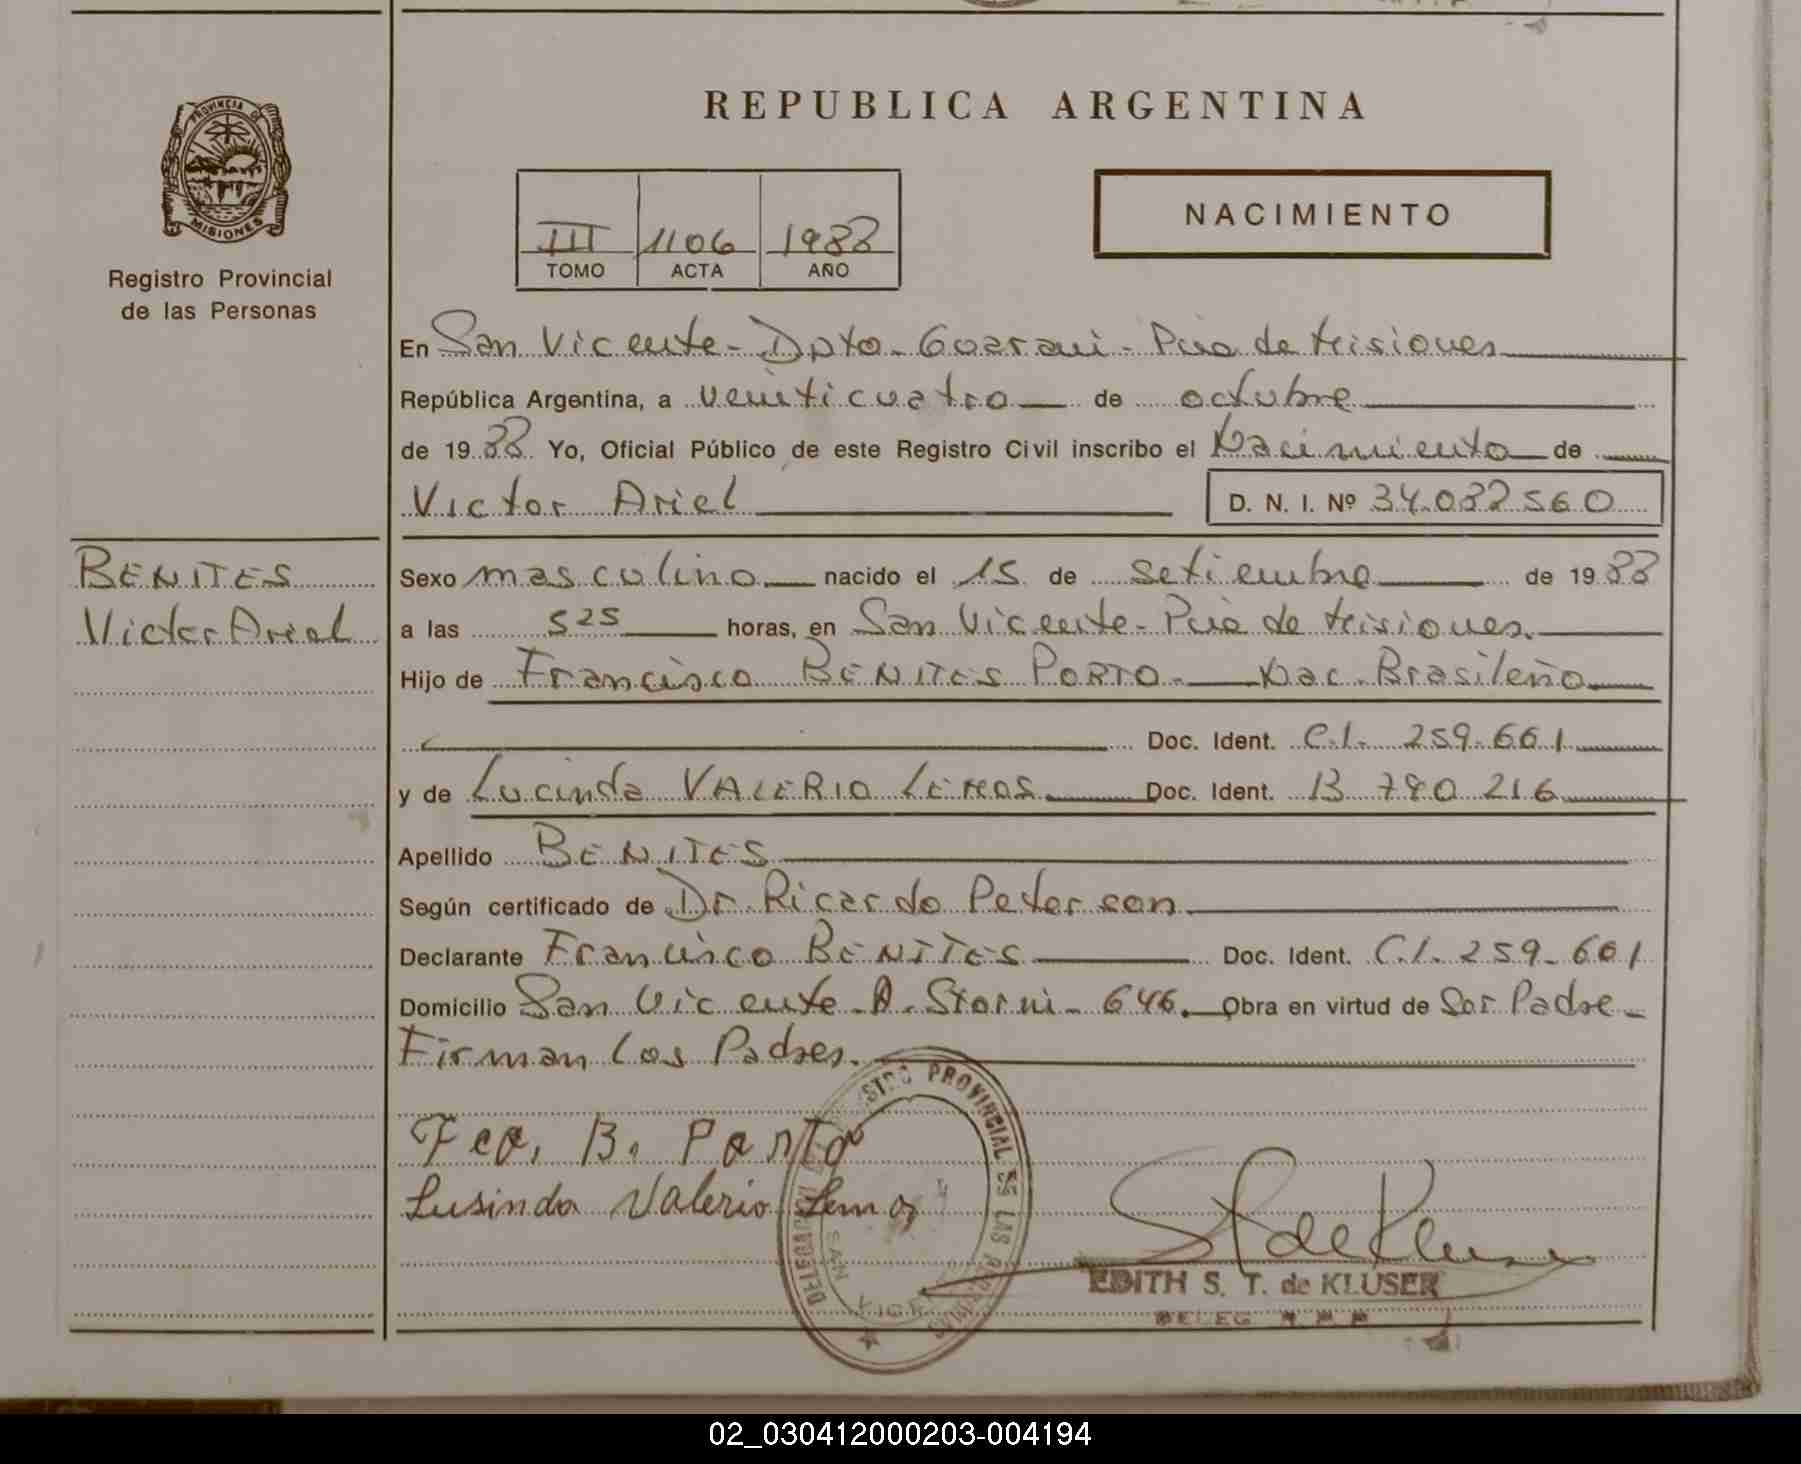 PROVINCIA DE
MISIONES
Registro Provincial
de las Personas
REPUBLICA ARGENTINA
III 1106 1988
TOMO ACTA AÑO
NACIMIENTO
En San Vicente - Dpto. Guarani - Pcia de Misiones
República Argentina, a veinticuatro de octubre
de 19 88 Yo, Oficial Público de este Registro Civil inscribo el Nacimiento de
Victor Ariel D. N. I. Nº 34.082560
BENITES
Victor Ariel
Sexo masculino nacido el 15 de setiembre de 19 88
a las 5 25 horas, en San Vicente - Pcia de Misiones.
Hijo de Francisco BENITES PORTO - Nac. Brasileño
Doc. Ident. C.I. 259.661
y de Lucinda VALERIO LEMOS Doc. Ident. B 790 216
Apellido BENITES
Según certificado de Dr. Ricardo Peterson
Declarante Francisco BENITES Doc. Ident. C.I. 259.661
Domicilio San Vicente - A. Storni - 646. Obra en virtud de Ser Padre -
Firman los Padres.
Fco. B. Porto
Lusinda Valerio Lemos
REGISTRO PROVINCIAL DE LAS PERSONAS
DELEGACION
SAN VICENTE
EDITH S. T. de KLUSER
DELEG
02_030412000203-004194